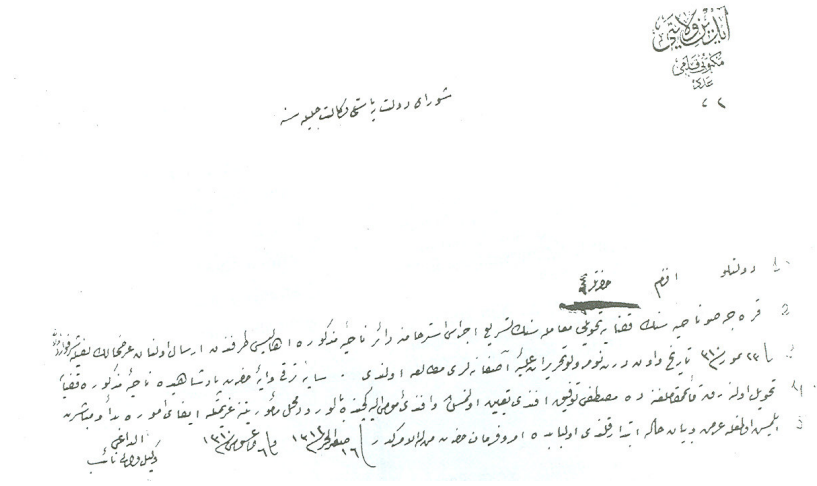 آیدین ولایتی
مکتوبی قلمی
عدد
٧٢
شورای دولت ریاستی وکالت جلیله سنه
1 دولتلو افندم حضرتلری
2 قره جه صو ناحیه سنك قضایه تحویلی معامله سنك تسریع اجراسی استرحامنه دائر ناحیۀ مذکوره اهالیسی طرفندن ارسال اولنان عرضحالك
3 تاریخ و نومرولو تحریرات علیۀ آصفانه لری مطالعه اولندی . سایۀ حضرت پادشاهیده ناحیۀ مذکوره قضایه
4 تحویل اولنه رق قائممقاملغنه ده مصطفی توفیق افندی تعیین اولنمش و افندی مومی الیه محل مأموریتنه عزیمتله ایفای اموره بدأ و مباشرت
5 ایلمش اولمغله عرض و بیان حاله ابتدار قلندی اولبابده امر و فرمان حضرت من له الامركدر
الداعی
وکیل والی نائب